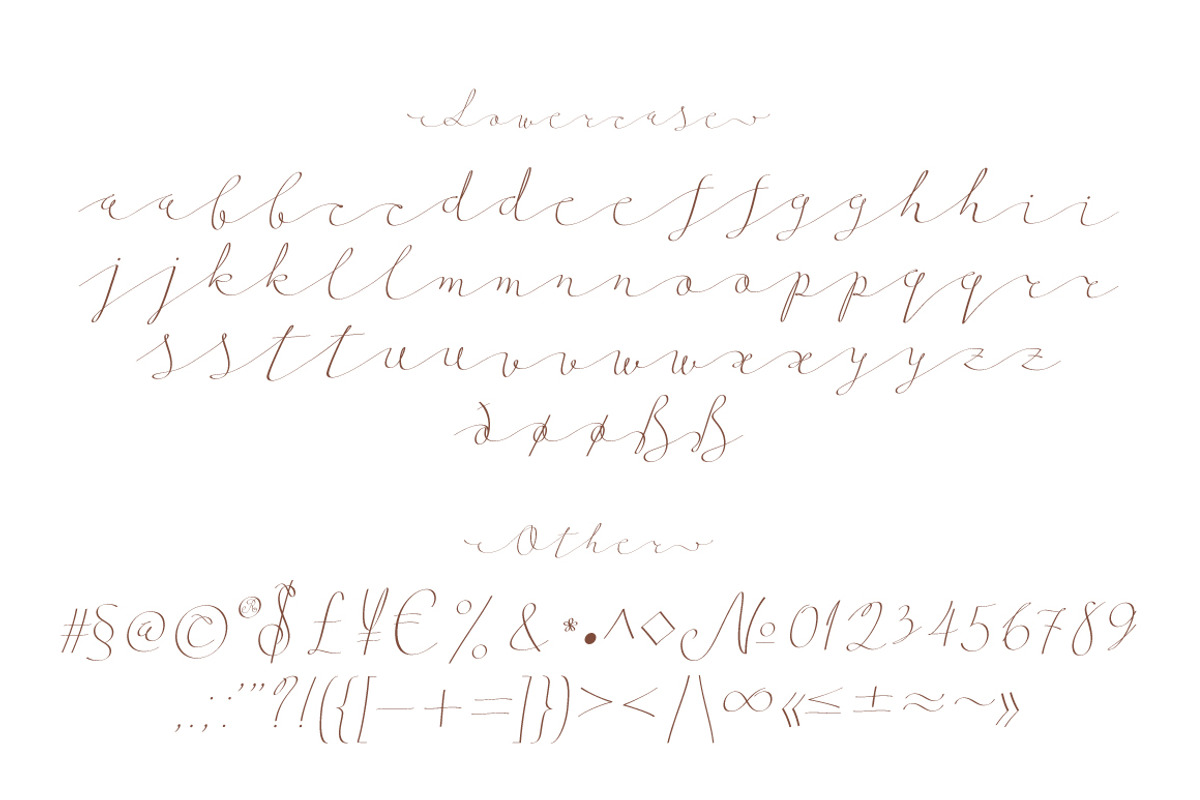 Lowercase
a a b b c c d d e e f f g g h h i i
j j k k l l m m n n o o p p q q r r
s s t t u u v v w w x x y y z z
ð ø ø ß ß
Other
# § @ © ® $ £ ¥ € % & * • ^ ◇ № 0 1 2 3 4 5 6 7 8 9
, . , ; : ' " ? ! ( { [ — + = ] } ) > < / \ ∞ « ≤ ± ≈ ~ »